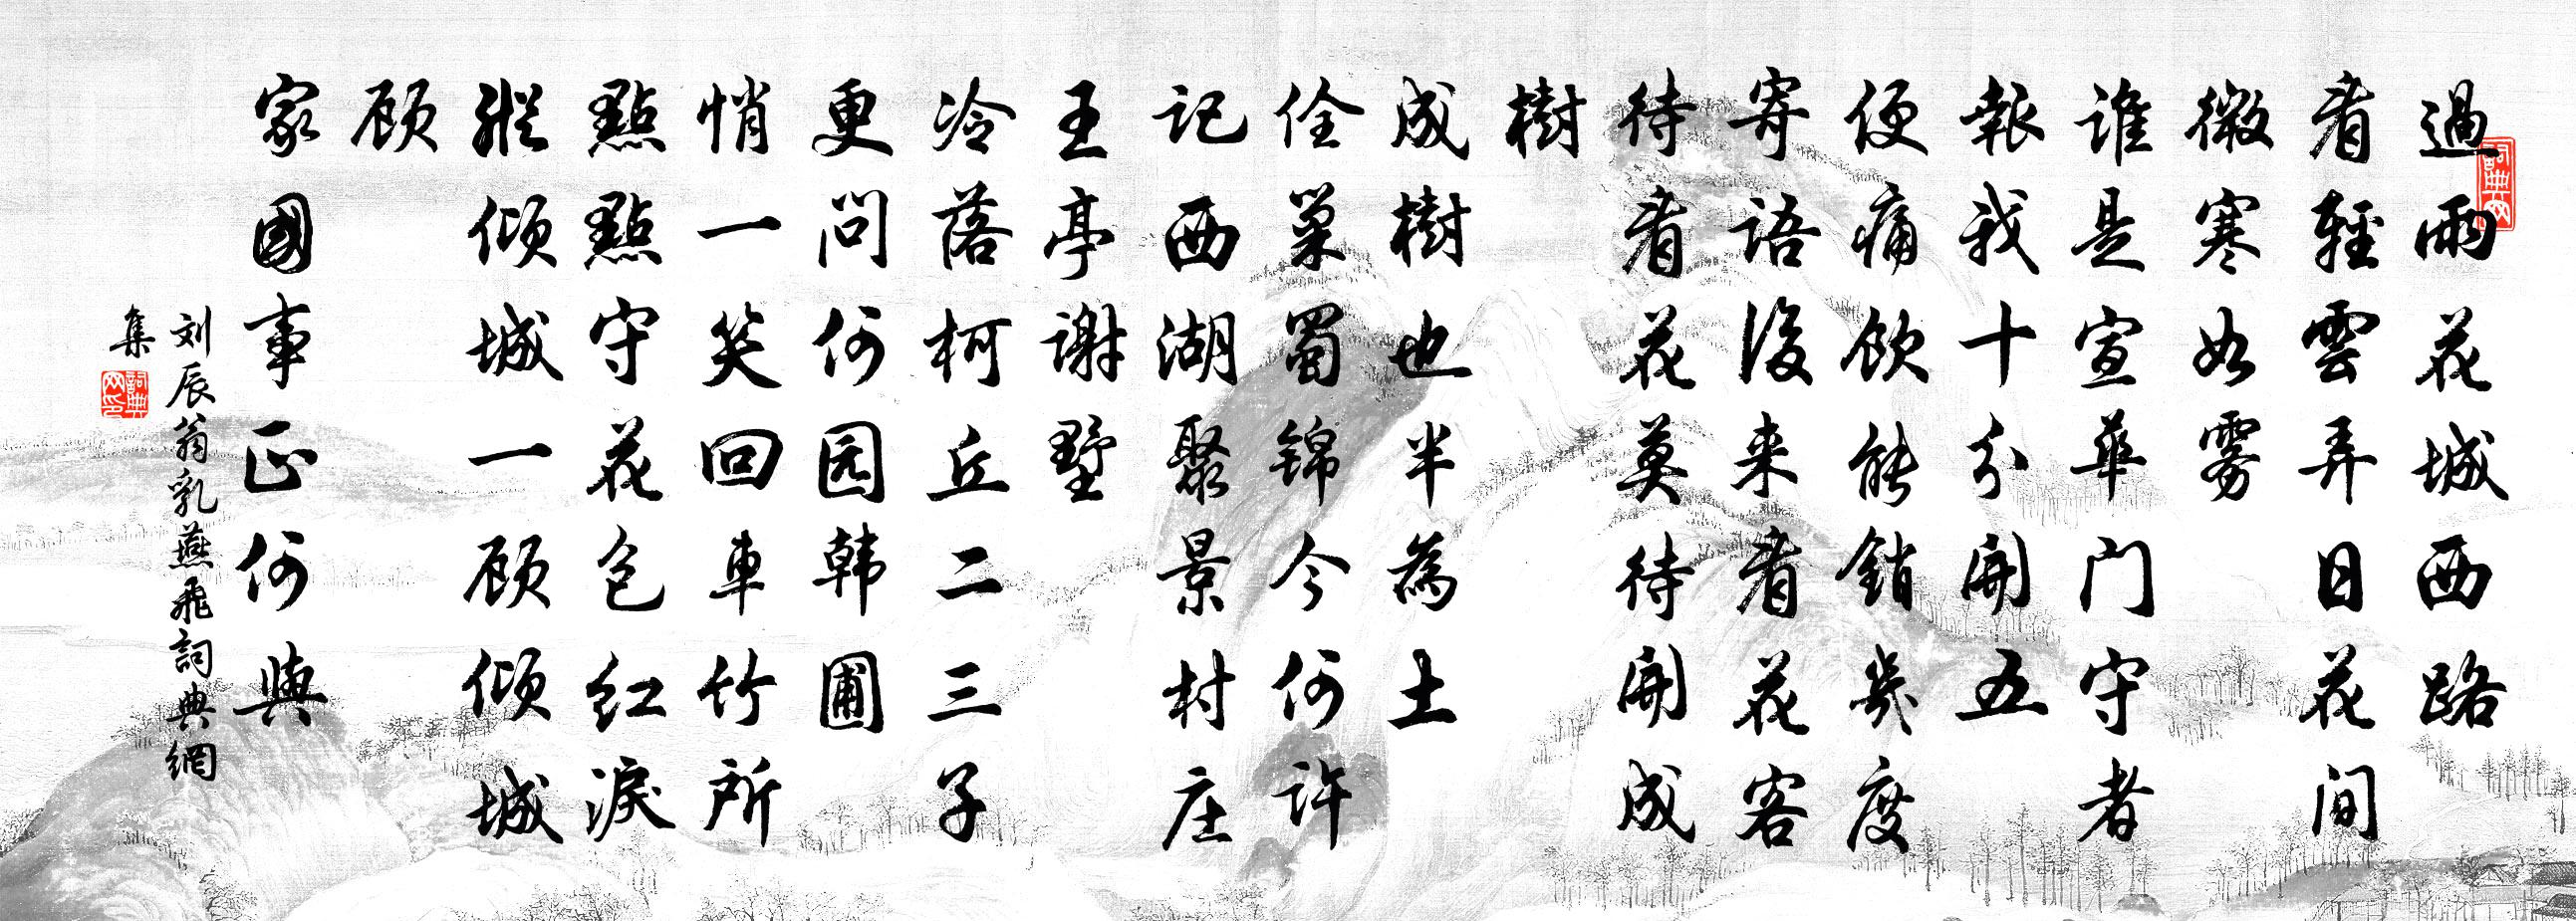 過雨花城西路
看輕雲弄日花间
微寒如雾
谁是宣華门守者
報我十分開五
便痛飲能銷幾度
寄語後来看花客
待看花莫待開成
樹
成樹也半為土
佺巢蜀锦今何许
记西湖聚景村庄
王亭谢墅
冷落柯丘二三子
更问何园韩圃
悄一笑回車竹所
點點守花包红淚
縱倾城一顾倾城
顾
家國事正何與
刘辰翁乳燕飛詞典網
集
詞典网
詞典网印